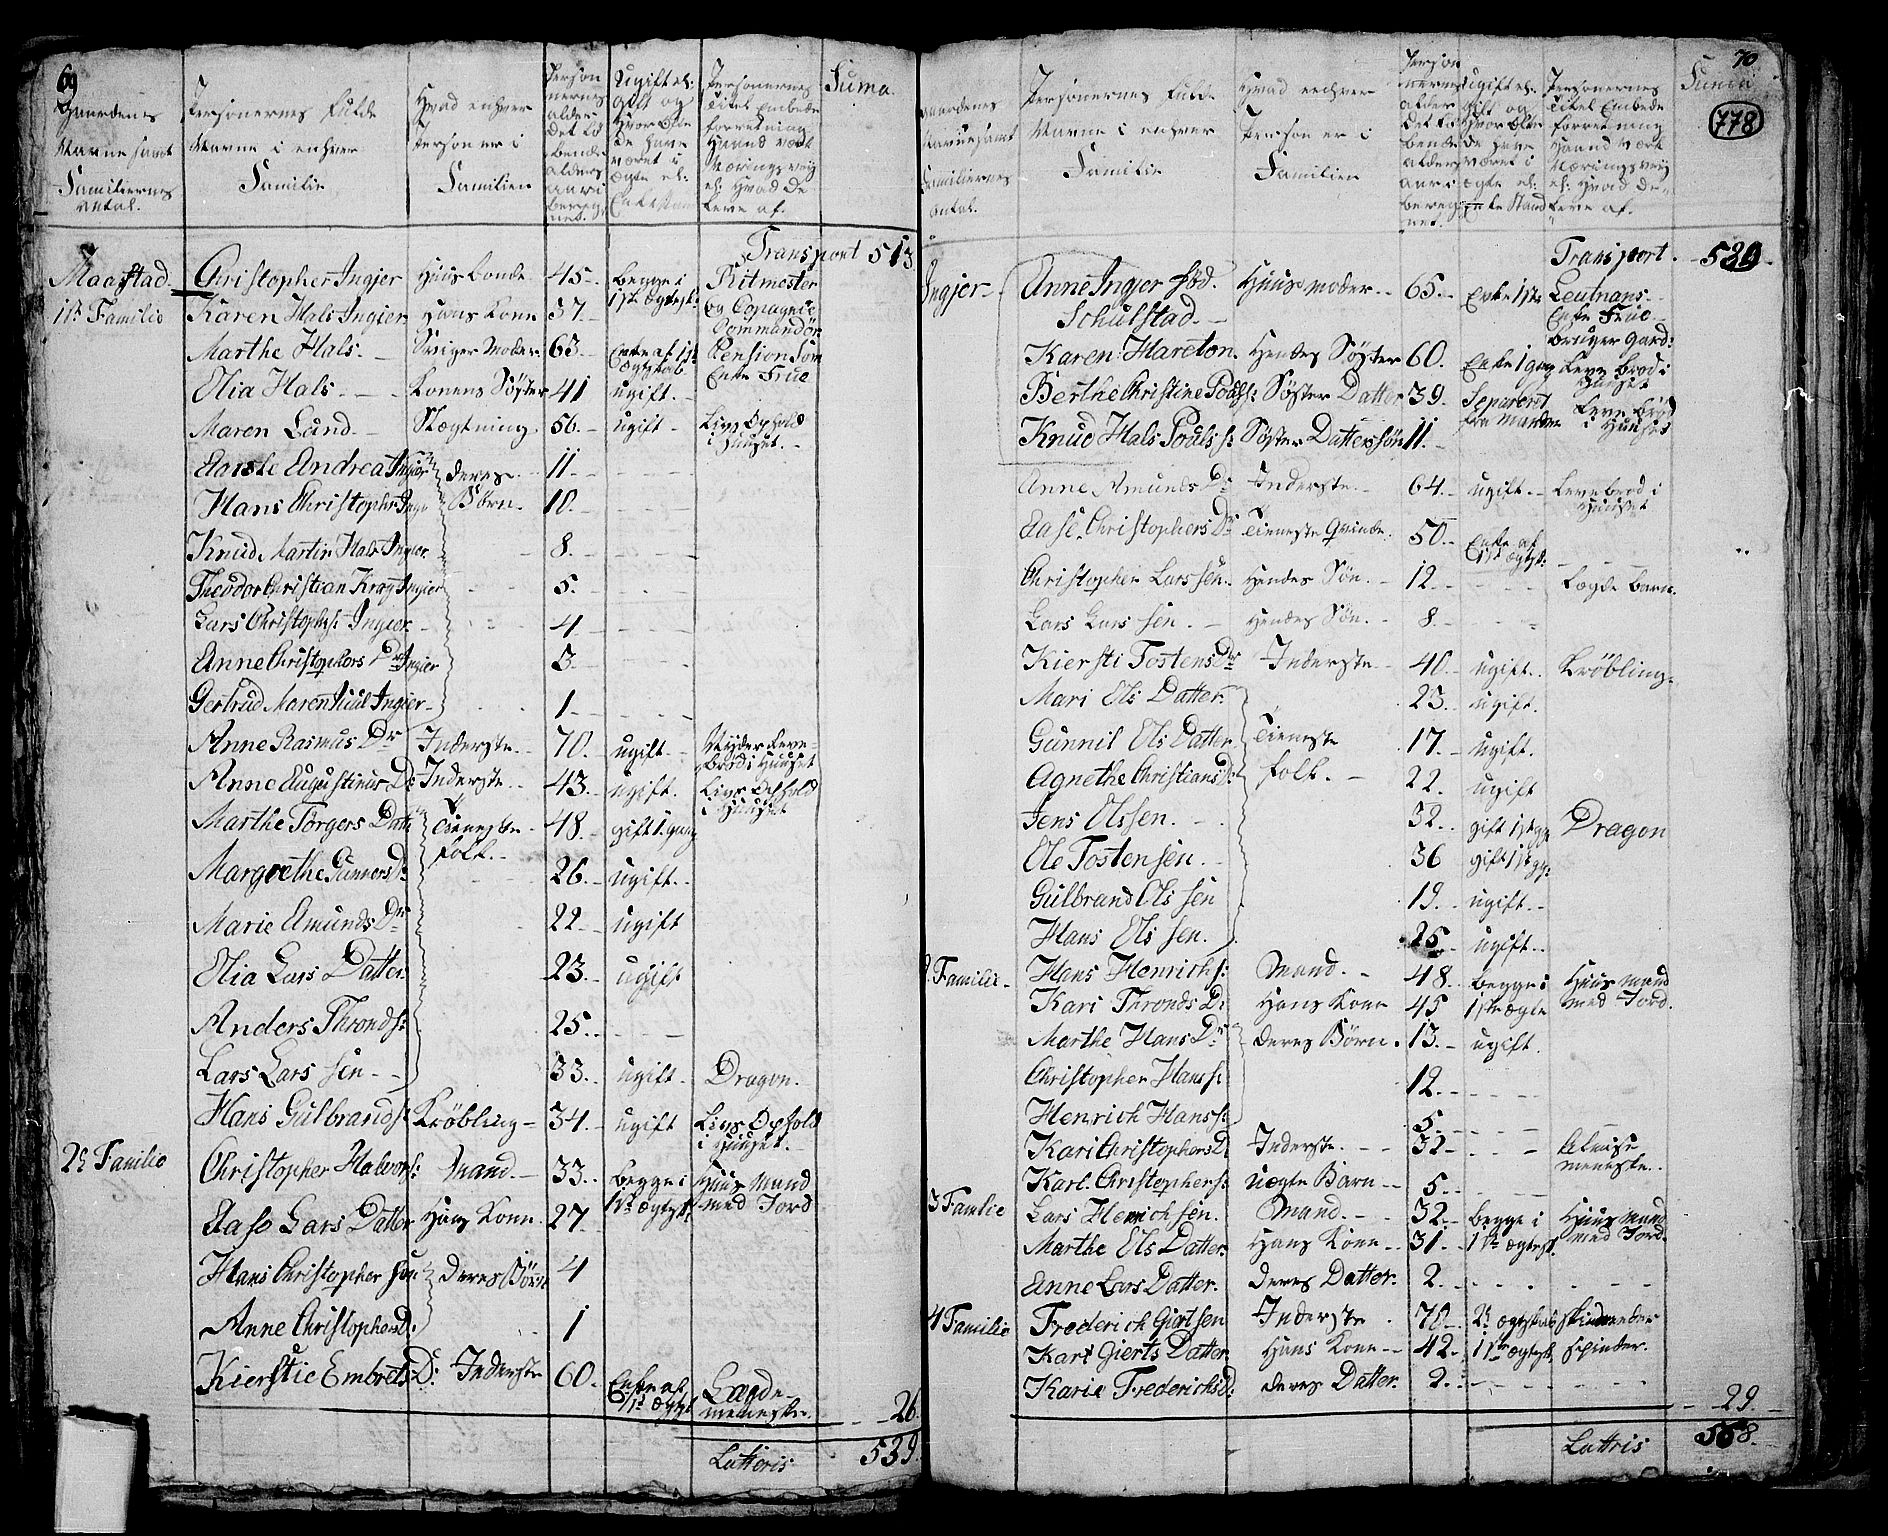 69
Gaardenes Navne samt Familiernes Antal.
Personernes Fulde Navne i enhver Familie
Hvad enhver Person er i Familien
Personernes alder det løbende alders aar i beregnet.
Ugift el: gift og hvor ofte de have været i Ægte el: Enkestand
Personernes Titel Embede forretning Haand værk Nærings vej el: Hvad De leve af.
Suma
Transport 513
Maastad Christopher Ingjer Huus bonde 45 begge i 1ste ægtesk: Ritmester og Copagnie Commandør
1te Familie Karen Hals Ingier Hans Kone 37
Marthe Hals Sviger Moder 63 Enke af 1ste Ægteskab Pension som Enke Frue
Elia Hals Konens Søster 41 ugift
Maren Lund Slægtning 56 ugift Livs Ophold i Huuset
Andrea Ingier deres Børn 11
Hans Christopher Ingier 10
Knud Martin Hals Ingier 8
Theodor Christian Krag Ingier 5
Lars Christophs: Ingier 4
Anne Christophers Dr Ingier 3
Gertrud Maren Juul Ingier 1
Anne Rasmus Dr Inderste 70 ugift Nyder Leve brød i Huuset
Anne Augustinus D: Inderste 43 ugift Livs Ophold i Huuset
Marthe Torgers Datter Tieneste folk 48 gift 1 gang
Margrethe Gunners D: 26 ugift
Marie Amunds Dr 22 ugift
Elia Lars Datter 23 ugift
Anders Thronds: 25
Lars Lars sen 33 ugift Dragon
Hans Gulbrands: Krøbling 34 ugift Livs Ophold i Huuset
2de Familie Christopher Halvors: Mand 33 begge i 1ste ægtesk. Huus Mand med Jord
Aase Lars Datter Hans Kone 27
Hans Christopher sen deres Børn 4
Anne Christophers D: 1
Kierstie Embrets D: Inderste 60 Enke af 1ste Ægtesk Lægde menneske 26
Latteris 539

70
778
Gaardenes Navne samt Familiernes Antal.
Personernes Fulde Navne i enhver Familie
Hvad enhver Person er i Familien
Personernes alder det løbende alders aar i beregnet.
ugift el: gift og hvor ofte de have været i Ægte el: Enke Stand
Personernes Titel Embede forretning Haand værk Nærings vej el: Hvad de leve af.
Suma
Transport. 539
Ingjer Anne Ingjer fød. Schulstad Huus moder 65 Enke 1ste Leutnans Enke Frue bruger Gard:
Karen Harcton Hendes Søster 60 Enke 1 gang Leve brød i Huuset
Berthe Christine Pouls: Søster Datter 39 Separeret fra Manden Leve brød i Huuset
Knud Hals Pouls s: Søster Dattersøn 11
Anne Amunds Dr Inderste 64 ugift Leve brød i Huuset
Aase Christophers Dr Tieneste Qvinde 50 Enke af 1ste ægtsk:
Christopher Lars sen Hendes Søn 12 Lægde Barn
Lars Lars sen Hendes Søn 8
Kiersti Tostens Dr Inderste 40 ugift Krøbling
Mari Ols Datter 23 ugift
Gunnil Ols Datter Tieneste folk 17 ugift
Agnethe Christians D: 22 ugift
Jens Olssen 32 gift 1ste gg Dragon
Ole Tostensen 36 gift 1ste gg:
Gulbrand Ols sen 19 ugift
Hans Ols sen 25 ugift
2 Familie Hans Henrichs: Mand 48 begge i 1ste ægte Huus Mand med Jord
Kari Thronds D: Hans Kone 45
Marthe Hans Dr deres Børn 13 ugift
Christopher Hans s: 12
Henrich Hans s: 5
Kari Christophers D: Inderste 32 Almisse menneske
Karl Christophers: uægte Barn 5
3 Familie Lars Henrichsen Mand 32 begge i 1ste ægtesk. Huus Mand med Jord
Marthe Ols Datter Hans Kone 31
Anne Lars Datter deres Datter 2
4 Familie Frederich Giertsen Inderste 70 2det ægteskab
Kari Gierts Datter Hans Kone 42 1ste ægtesk Spinder
Karie Frederichs D: deres Datter 2
29
Lattris 568